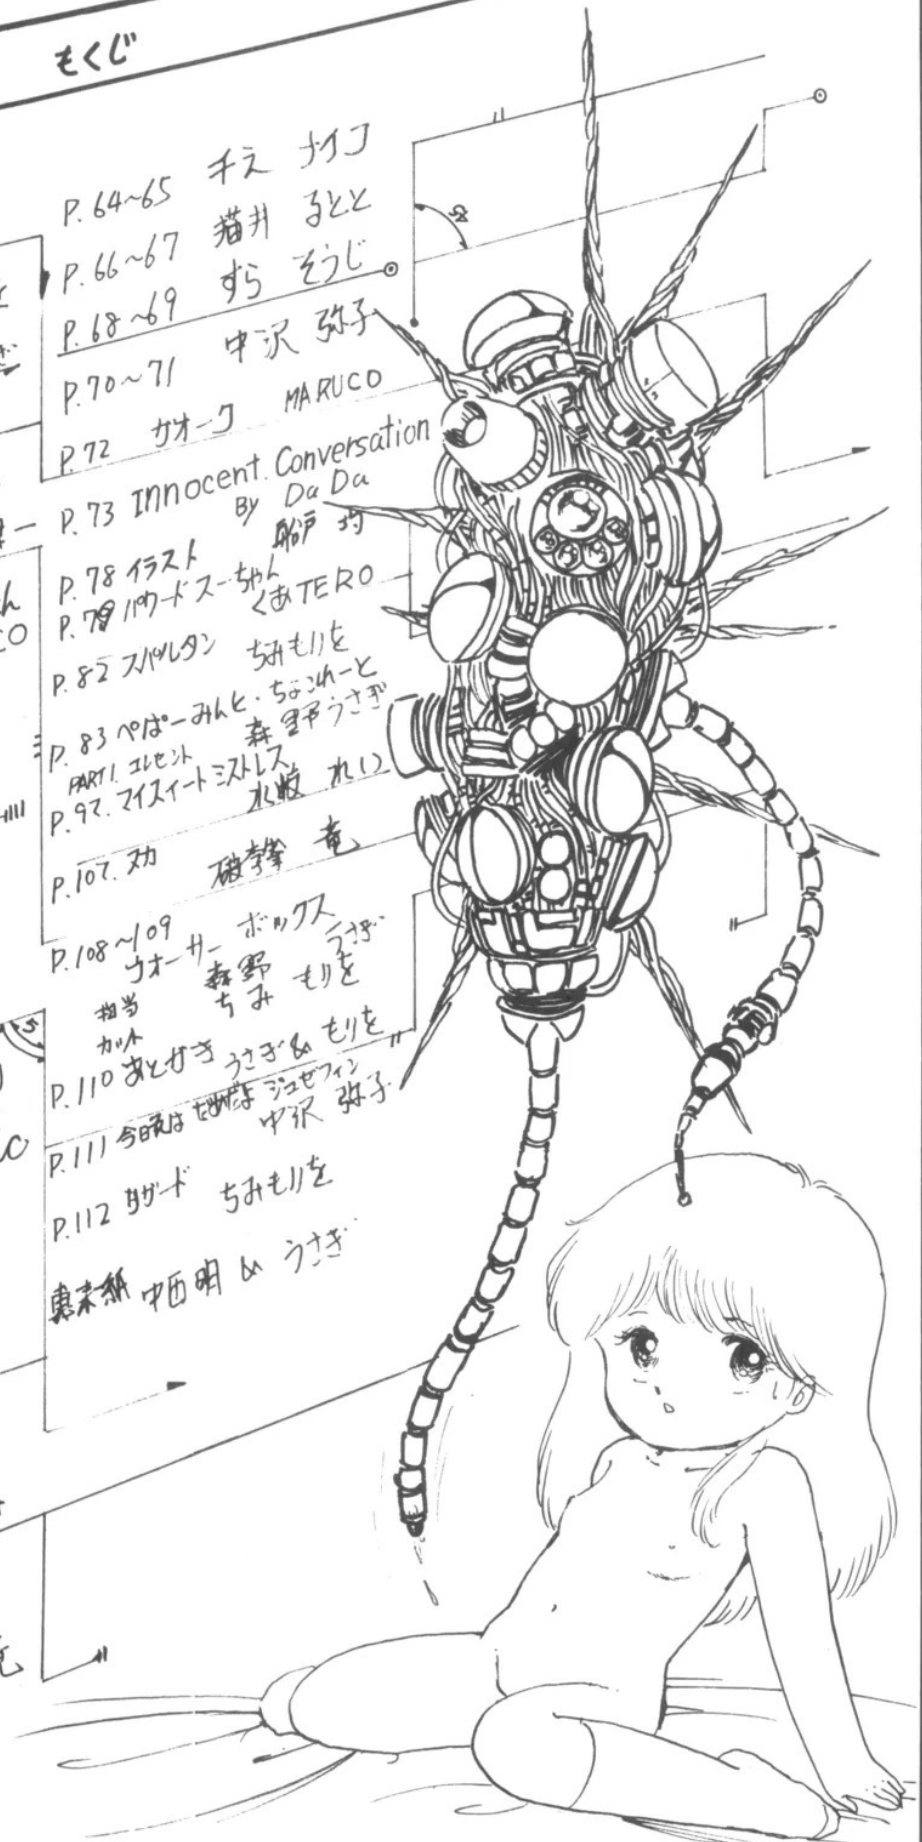 もくじ
P.64~65 チえ ナイコ
P.66~67 猫井 るとと
P.68~69 すら そうじ
P.70~71 中沢 弥子
P.72 カオーク MARUCO
P.73 Innocent Conversation
By DaDa
P.78 イラスト 船戸
P.79 パワードスーちゃん
くあTERO
P.82 スパルタン ちみもりを
P.83 ぺぱーみんと・ちょこれーと
森野うさぎ
PART1. エレセント
P.97. マイスィートミストレス
水岐 れい
P.107. ヌカ 破拳 竜
P.108~109
ウオーサー ボックス
担当 森野 うさぎ
カット ちみ もりを
P.110 あとがき うさぎ & もりを
P.111 今晩は ジョゼフィン
中沢 弥子
P.112 ちみもりを
裏表紙 中西明 & うさぎ